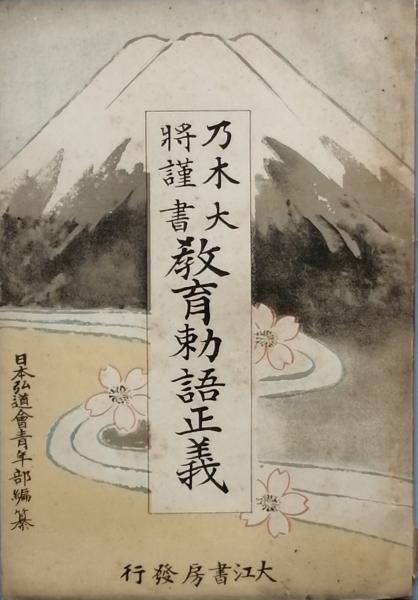 乃木大
將謹書
教育勅語正義
日本弘道會青年部編纂
大江書房發行